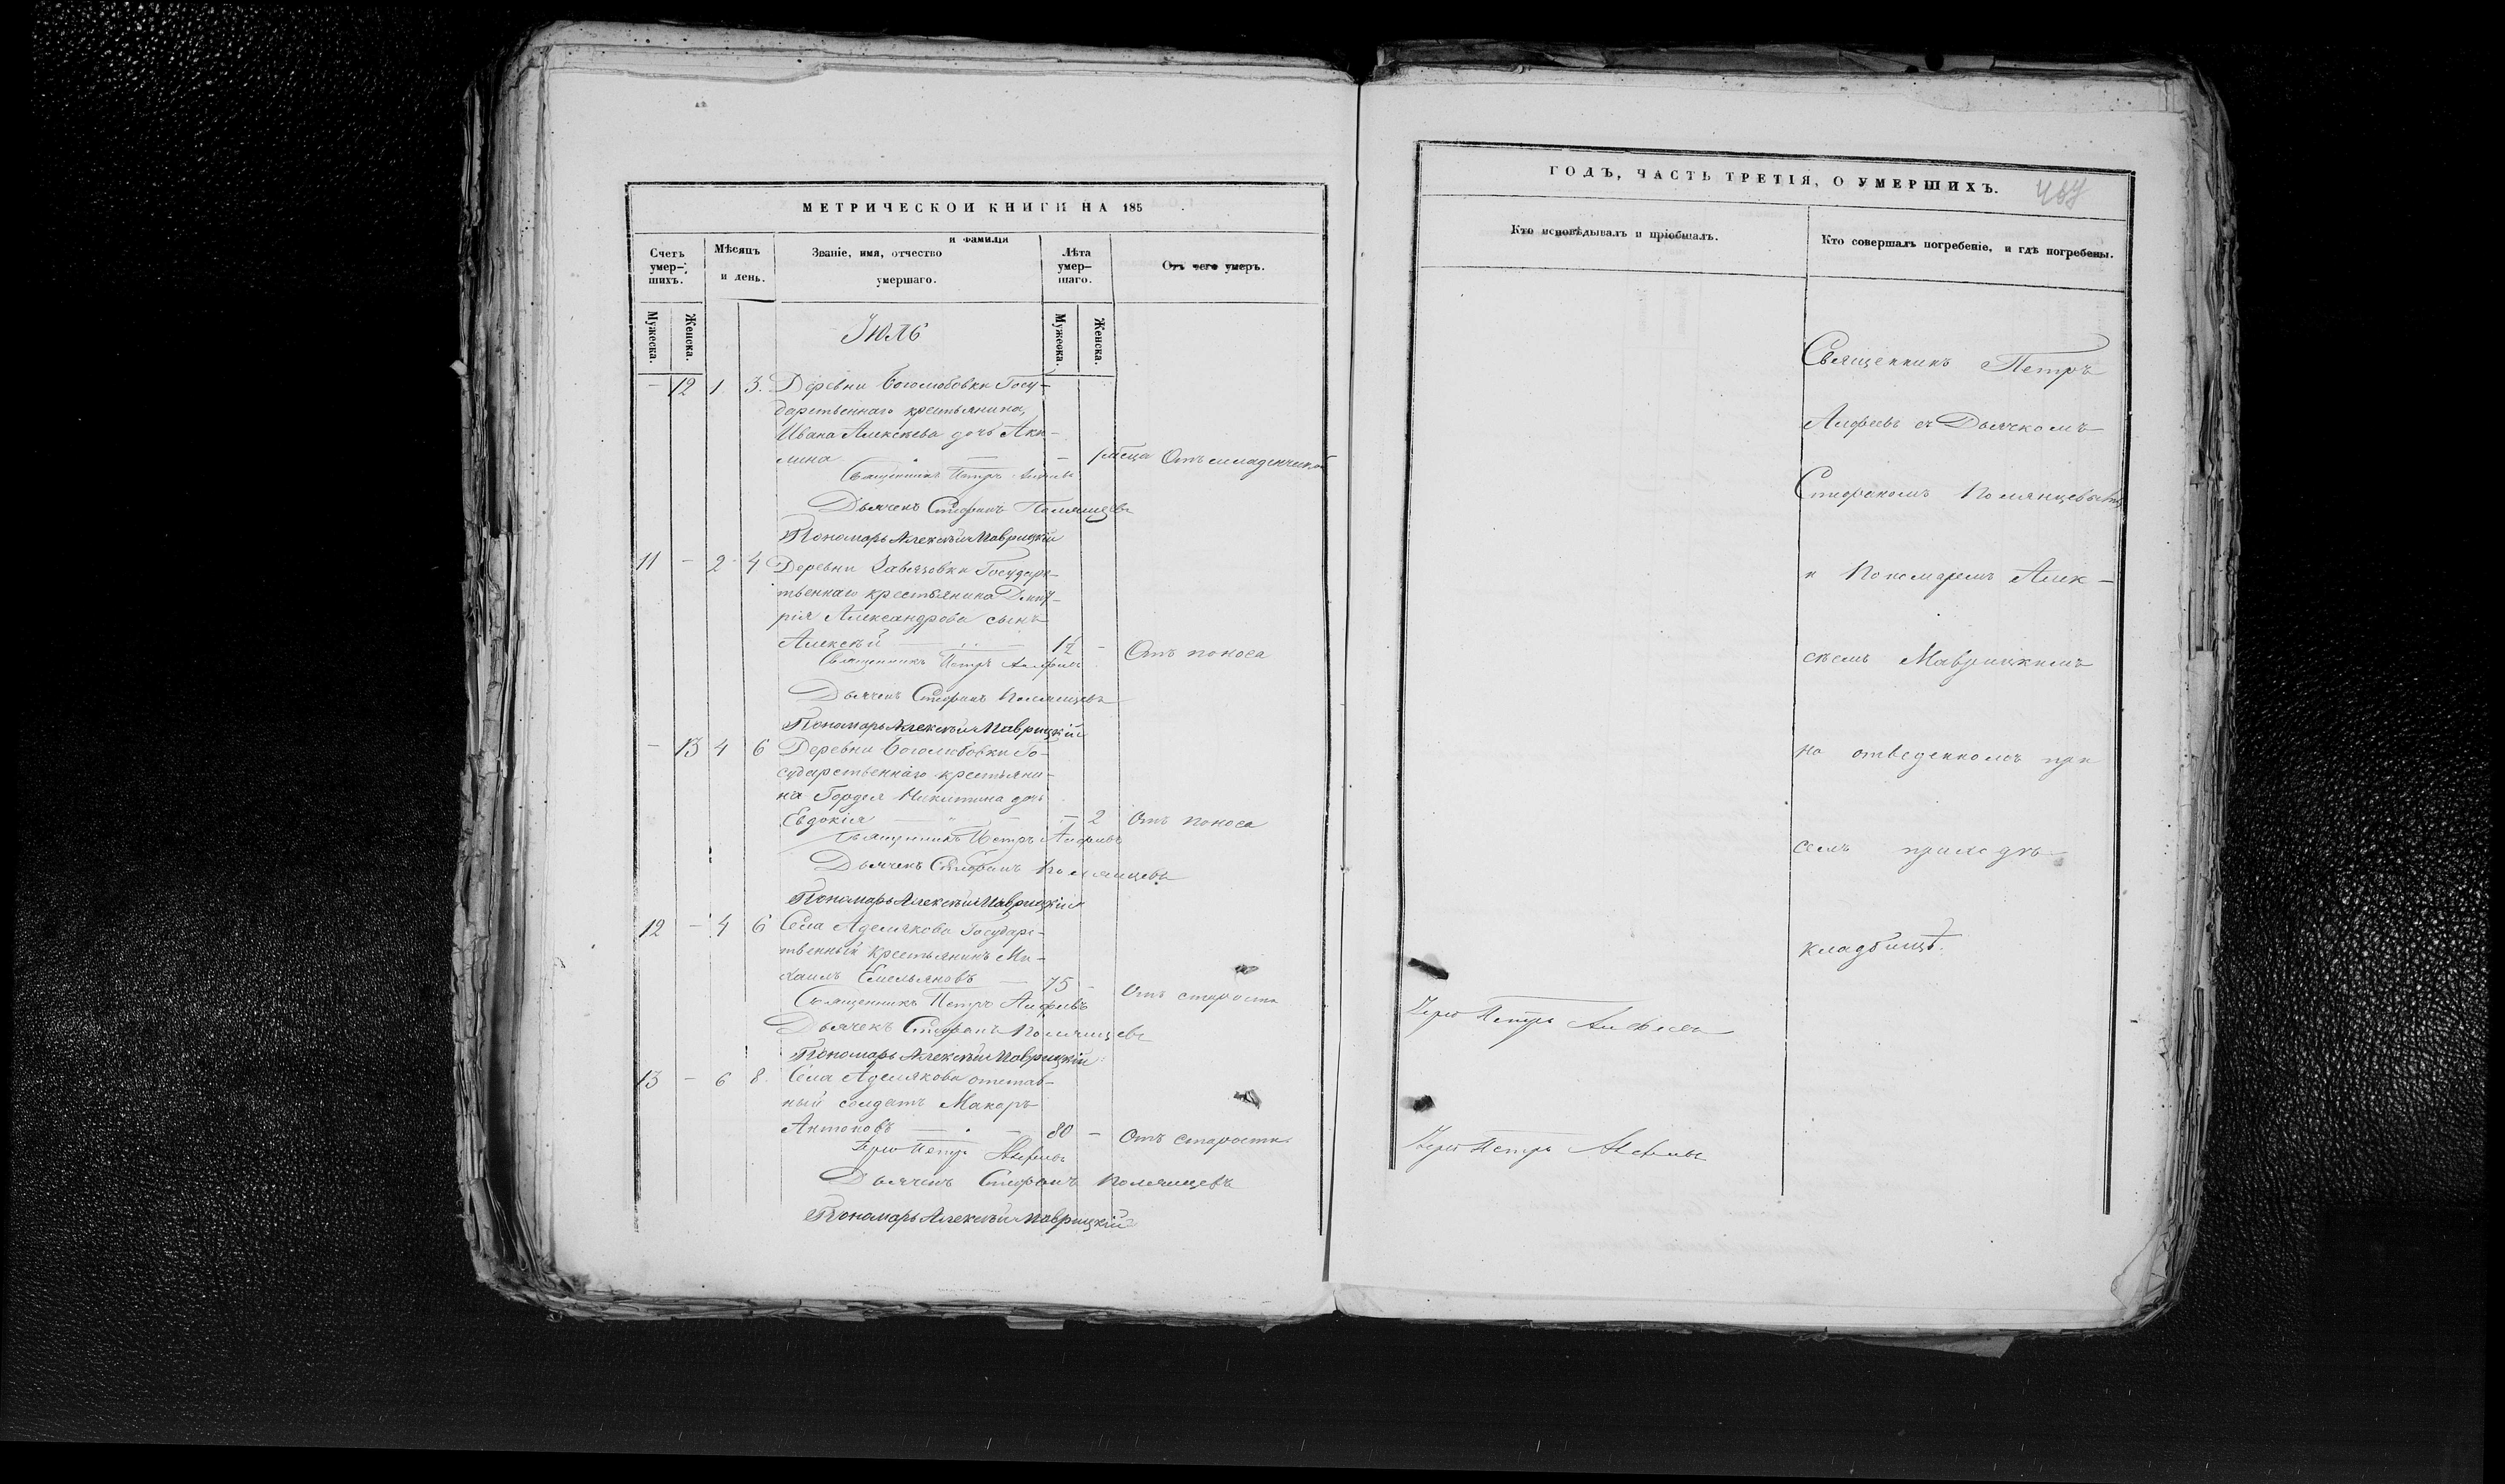 МЕТРИЧЕСКОЙ КНИГИ НА 185
Счетъ умер-шихъ.
Мѣсяцъ и день.
Званіе, имя, отчество и фамилія умершаго.
Лѣта умер-шаго.
Отъ чего умеръ.
Мужеска. Женска.
Мужеска. Женска.
Іюль
— 12 1. 3. Деревни Боголюбовки Госу-
дарственнаго крестьянина,
Ивана Алексѣева дочь Аки-
лина — — 1 мѣсца Отъ младенческой
Священникъ Петръ Алфеевъ
Дьячекъ Стефанъ Полянцевъ
Пономарь Алексѣй Маврицкій
11 — 2 4 Деревни Завязовки Государс-
твеннаго крестьянина Дмит-
рія Александрова сынъ
Алексѣй — — Отъ поноса
Священникъ Петръ Алфеевъ
Дьячекъ Стефанъ Полянцевъ
Пономарь Алексѣй Маврицкій
— 13 4 6 Деревни Боголюбовки Го-
сударственнаго крестьяни-
на Гордея Никитина дочь
Евдокія — — 2 Отъ поноса
Священникъ Петръ Алфеевъ
Дьячекъ Стефанъ Полянцевъ
Пономарь Алексѣй Маврицкій
12 — 4 6 Села Аделякова Государс-
твенный крестьянинъ Ми-
хаилъ Емельяновъ — 75 — Отъ старости
Священникъ Петръ Алфеевъ
Дьячекъ Стефанъ Полянцевъ
Пономарь Алексѣй Маврицкій
13 — 6 8. Села Аделякова отстав-
ный солдатъ Макаръ
Антоновъ — 80 — Отъ старости
Іерей Петръ Алфеевъ
Дьячекъ Стефанъ Полянцевъ
Пономарь Алексѣй Маврицкій
ГОДЪ, ЧАСТЬ ТРЕТІЯ, О УМЕРШИХЪ.
Кто исповѣдывалъ и пріобщалъ.
Кто совершалъ погребеніе, и гдѣ погребены.
Священникъ Петръ
Алфеевъ съ Дьячкомъ
Стефаномъ Полянцевымъ
и Пономаремъ Алек-
сѣемъ Маврицкимъ
на отведенномъ при
семъ приходѣ
кладбищѣ.
Іерей Петръ Алфеевъ
Іерей Петръ Алфеевъ